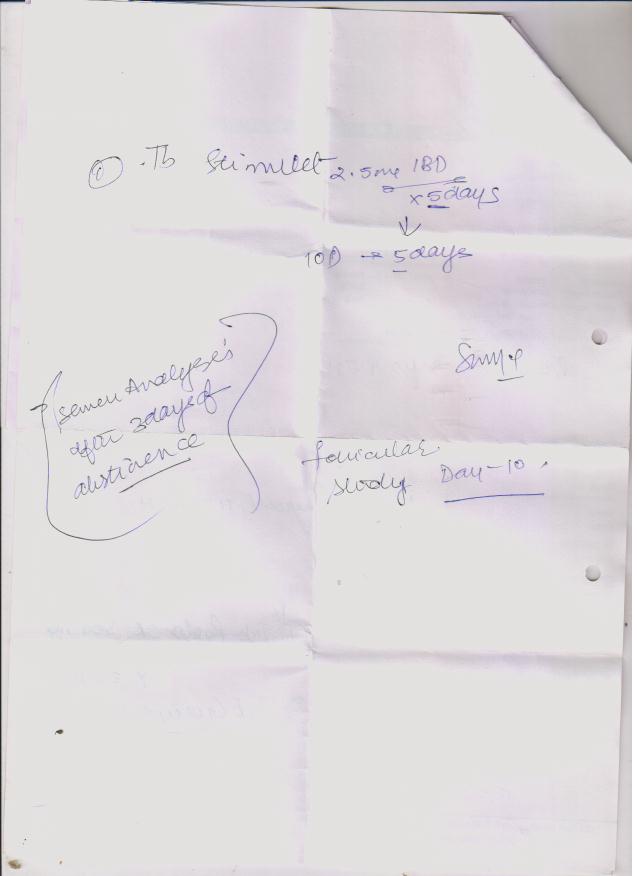 ① . Tb Stimulet 2.5mg 1BD
x 5days
↓
1OD → 5days
Semen Analysis
after 3days of
abstinence
follicular
study Day-10.